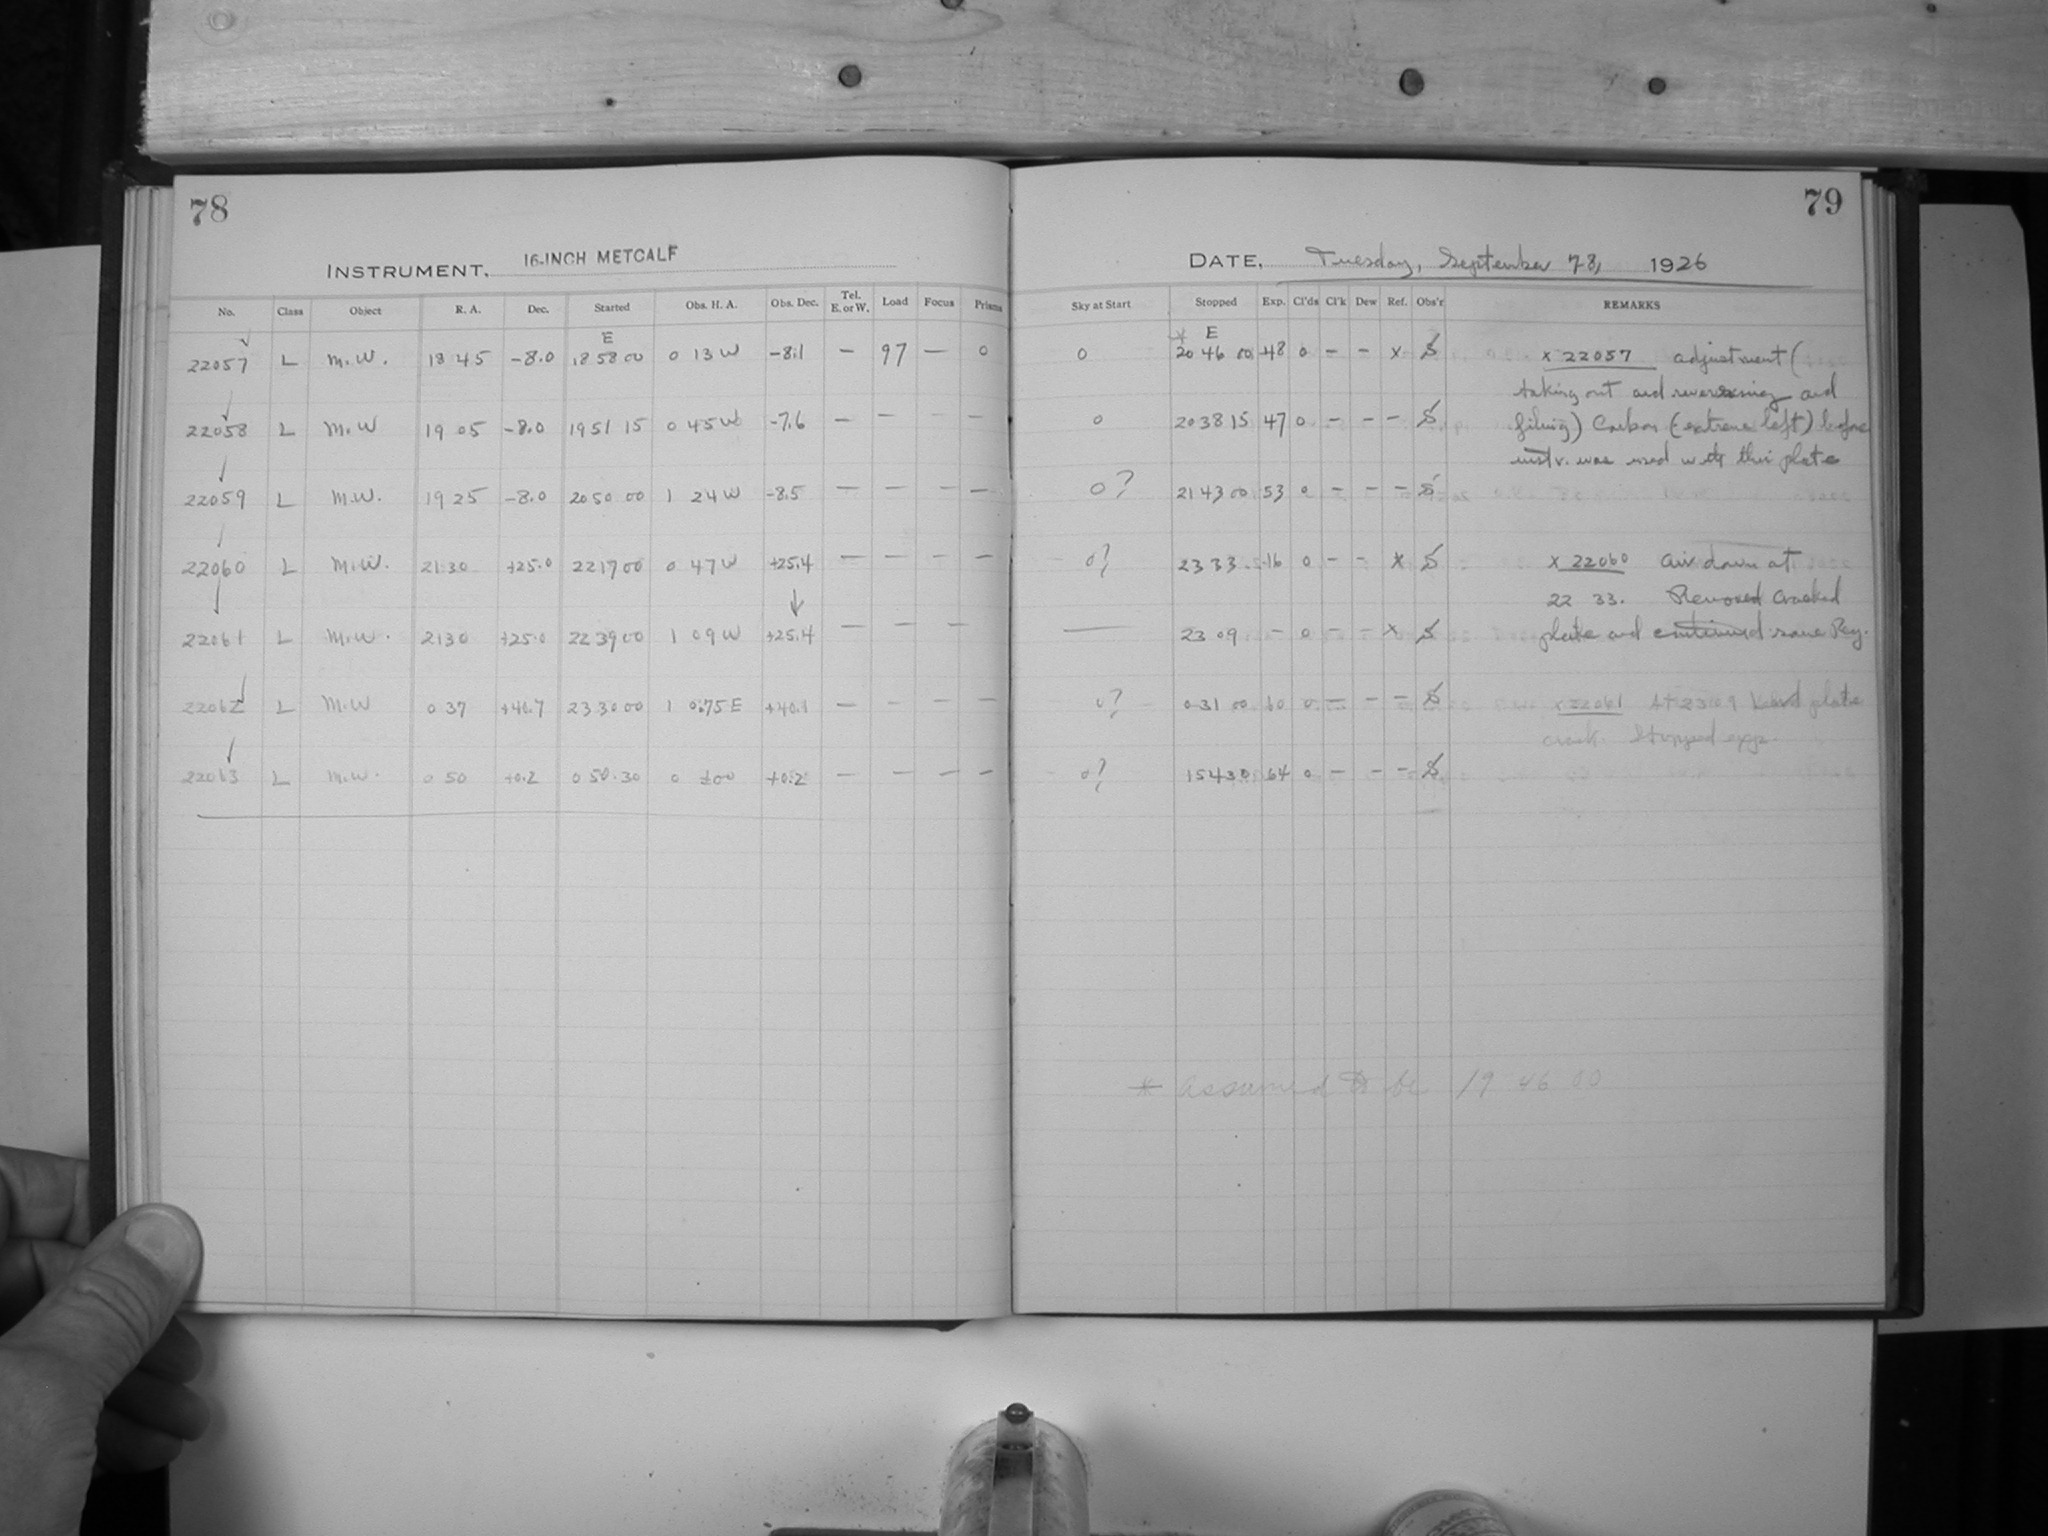 78
INSTRUMENT, 16-INCH METCALF
No. Class Object R. A. Dec. Started Obs. H. A. Obs. Dec. Tel. E. or W. Load Focus Prisms
E
22057 L M.W. 18 45 -8.0 18 58 00 0 13 W -8.1 — 97 — 0
22058 L M.W 19 05 -8.0 19 51 15 0 45 W -7.6 — — — —
22059 L M.W. 19 25 -8.0 20 50 00 1 24 W -8.5 — — — —
22060 L M.W. 21 30 +25.0 22 17 00 0 47 W +25.4 — — — —
22061 L M.W. 21 30 +25.0 22 39 00 1 09 W +25.4 — — —
22062 L M.W 0 37 +40.7 23 30 00 1 0.75 E — — — —
22063 L M.W. 0 50 +0.2 0 50.30 0 ±00 +0.2 — — — —
79
DATE, Tuesday, September 7-8, 1926
Sky at Start Stopped Exp. Cl'ds Cl'k Dew Ref. Obs'r REMARKS
* E
0 20 46 00 48 0 — — x S x 22057 adjustment (
taking out and reversing and
0 20 38 15 47 0 — — — S filing) Carbon (extreme left) before
instr. was used with this plate
0? 21 43 00 53 0 — — — S
0? 23 33 16 0 — — x S x 22060 air down at
22 33. Removed cracked
— 23 09 — 0 — — x S plate and continued same Reg.
0? 0 31 00 60 0 — — — S x 22061 At 23 09 heard plate
crack. Stopped exp.
0? 1 54 30 64 0 — — — S
* Assumed to be 19 46 00